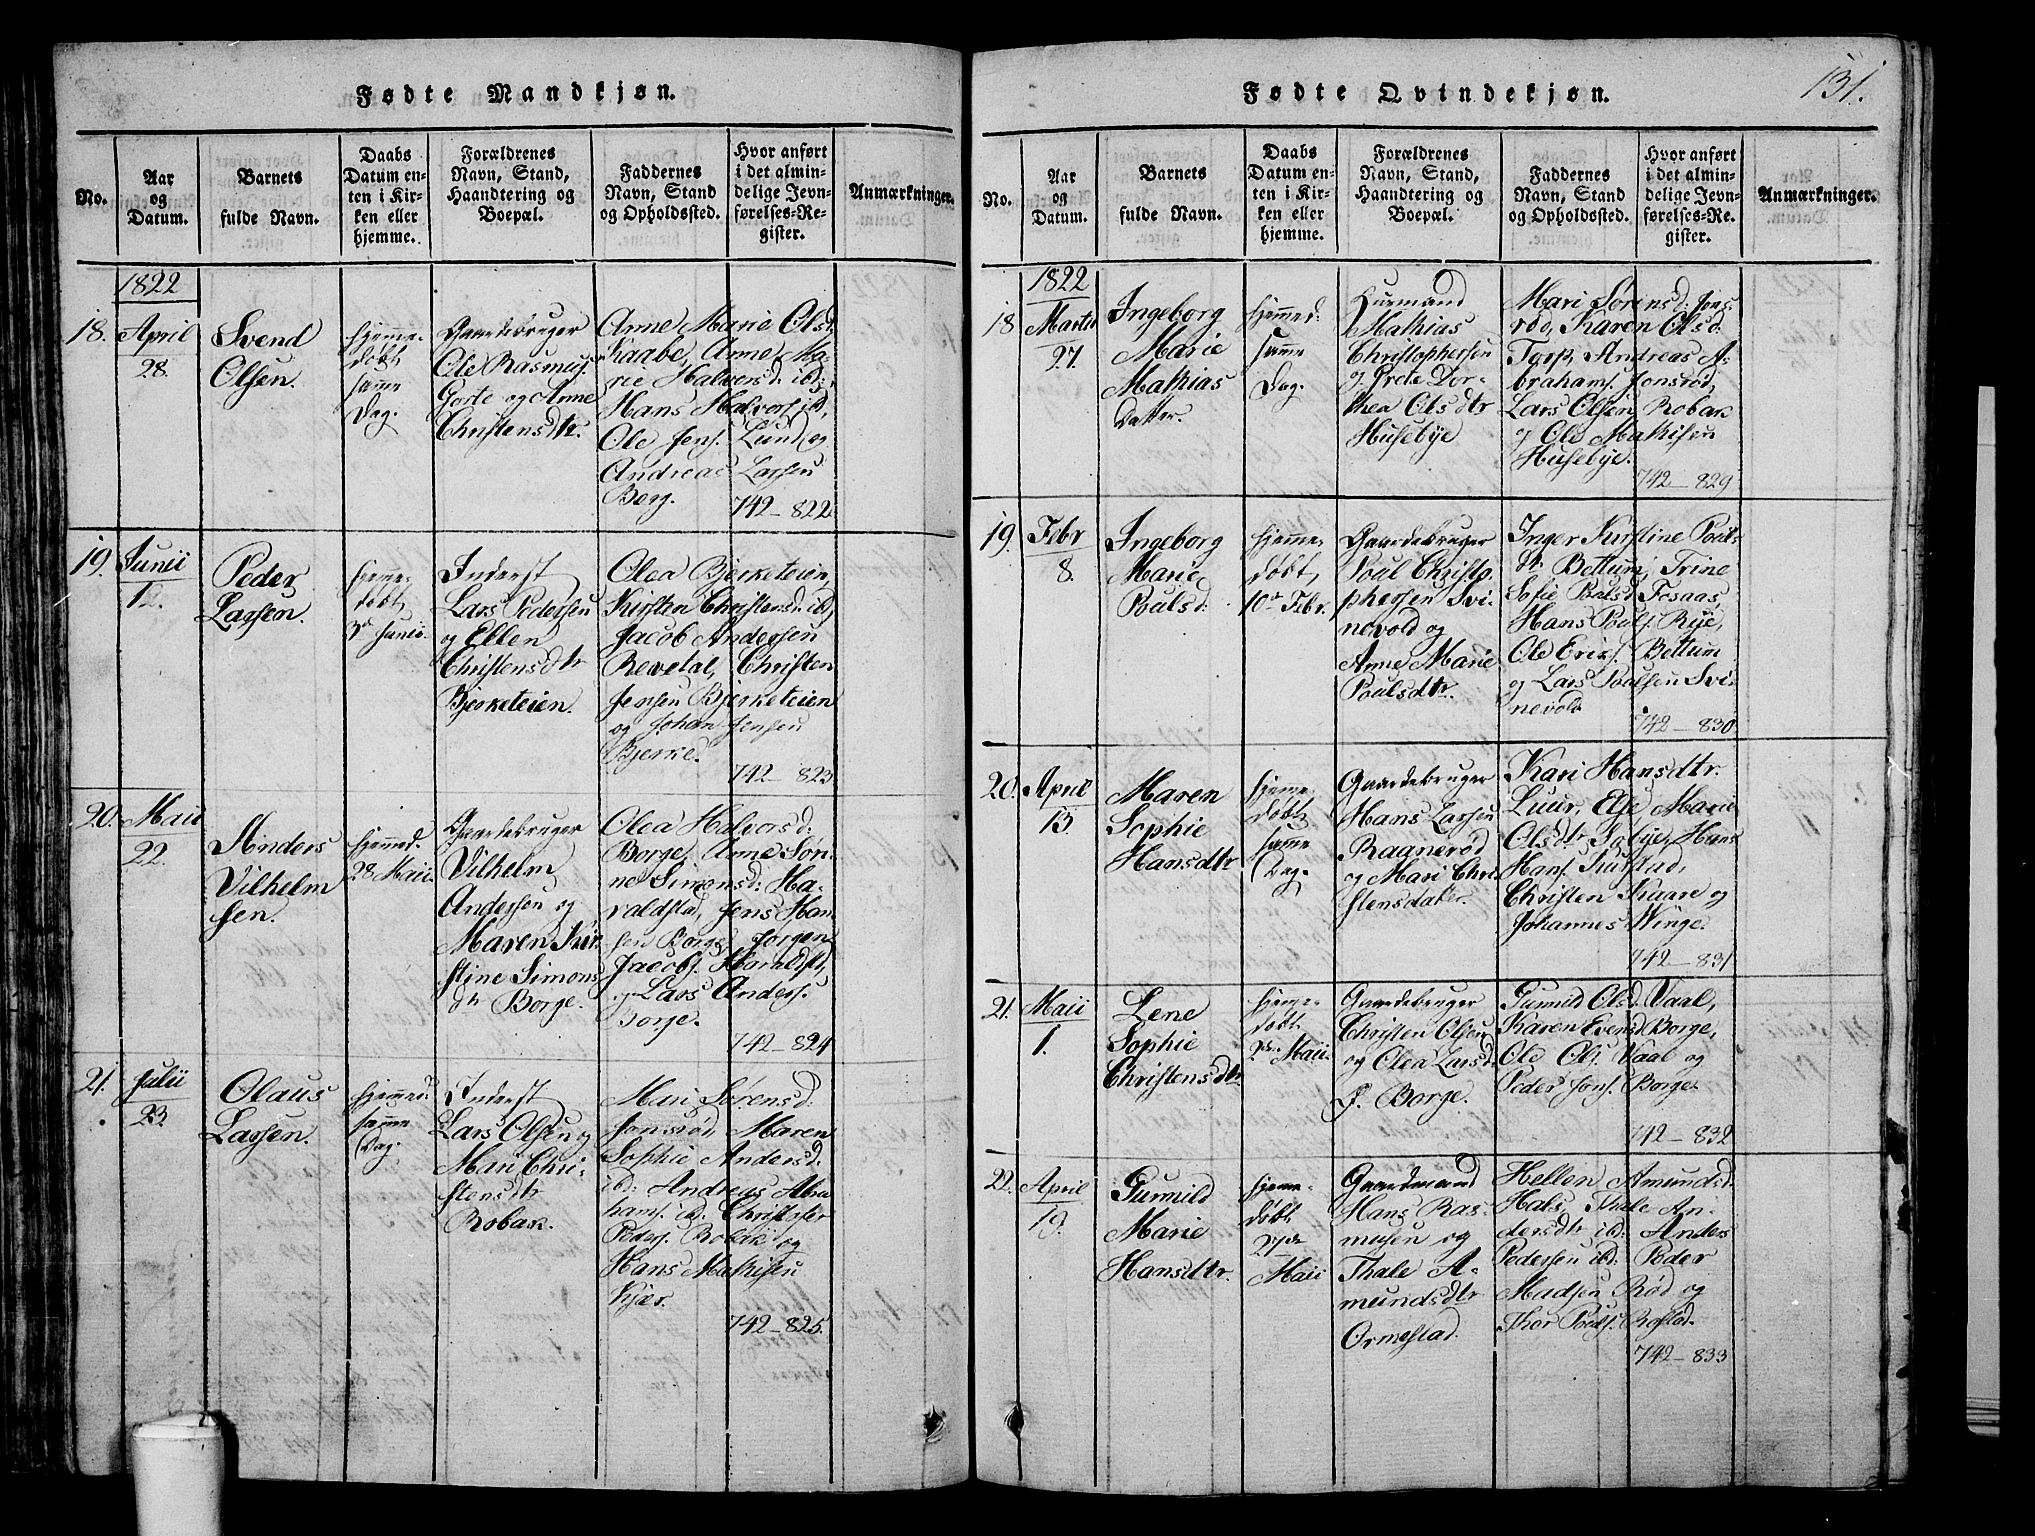 Fødte Mandkjøn.
No.
Aar
og
Datum.
Barnets
fulde Navn.
Daabs
Datum en-
ten i Kir-
ken eller
hjemme.
Forældrenes
Navn, Stand,
Haandtering og
Boepæl.
Faddernes
Navn, Stand
og Opholdssted.
Hvor anført
i det almin-
delige Jevn-
førelses-Re-
gister.
Anmærkninger.
1822
18.
April
28.
Svend
Olsen.
hjemme-
døbt
samme
Dag.
Gaardebruger
Ole Rasmus.
Gorte og Anne
Christensdtr.
Anne Marie Olsd.
Kaabe, Anne Ma-
rie Halvorsd. ibd.,
Hans Halvors. ibd,
Ole Jens. Lund, og
Andreas Larsen
Berg.
742-822
19.
Junii
12.
Peder
Larsen.
hjemme-
døbt
3d Junii.
Inderst
Lars Pedersen
og Ellen
Christensdtr
Bjerketeien.
Olea Bjerketeien,
Kirsten Christensd. ibd,
Jacob Andersen
Revetal, Christen
Jensen Bjerketeien
og Johan Jensen
Bjerke.
742-823
20.
Maii
22.
Anders
Vilhelm
sen.
hjemmed.
28 Maii.
Gaardebruger
Vilhelm
Andersen og
Maren Kir
stine Simons
dtr Borge.
Olea Halvorsd.
Borge, Anne Sør-
ine Simonsd: Ha-
raldstad, Jens Han
sen Borge, Jørgen
Jacobs. Haraldst,
og Lars Anders.
Borge.
742-824
21.
Julii
23.
Olaus
Larsen.
hjemmed.
samme
Dag.
Inderst
Lars Olsen og
Mari Chri-
stensdtr
Robak.
Mari Sørensd.
Jonsrød, Maren
Sophie Andersd.
ibd: Andreas Abra
hams. ibd: Christofer
Peders. Robak og
Hans Mathisen
Kjær.
742-825.
131.
Fødte Qvindekjøn.
No.
Aar
og
Datum.
Barnets
fulde Navn.
Daabs
Datum en-
ten i Kir-
ken eller
hjemme.
Forældrenes
Navn, Stand,
Haandtering og
Boepæl.
Faddernes
Navn, Stand
og Opholdssted.
Hvor anført
i det almin-
delige Jevn-
førelses-Re-
gister.
Anmærkninger.
1822
18
Martii
27.
Ingeborg
Marie
Mathias
Datter.
hjemmed:
samme
Dag.
Huusmand
Mathias
Christophersen
og Grete Dor-
thea Olsdtr
Husebye
Mari Sørensd: Jons
rød, Karen Olsd:
Torp, Andreas A-
brahams. Jonsrød,
Lars Olsen Robak
og Ole Mathisen
Husebye.
742-829
19.
Febr
8.
Ingeborg
Marie
Poulsd.
hjemme-
døbt
10de Febr.
Gaardebruger
Poul Christo-
phersen Svi-
nevold og
Anne Marie
Poulsdtr.
Inger Kirstine Pouls-
dtr Bettum, Trine
Sofie Poulsd Fosaas,
Hans Pouls. Rye,
Ole Eriks. Bettum
og Lars Poulsen Svi-
nevold
742-830
20.
April
13.
Maren
Sophie
Hansdtr
hjemme-
døbt
samme
Dag.
Gaardebruger
Hans Larsen
Ragnerød
og Mari Chri-
stensdatter.
Kari Hansdtr.
Luur, Else Marie
Olsdtr Søbye, Hans
Hans.
Christen Kaare og
Johannes Winge.
742-831
21.
Maii
1.
Lene
Sophie
Christensdtr
hjemme-
døbt
2de Maii.
Gaardebruger
Christen Olsen
og Olea Larsd.
F. Borge.
Gunnild Olsd. Vaal,
Karen Evensd Borge,
Ole Ols. Vaal og
Peder Jons. Borge.
742-832
22.
April
19.
Gunnild
Marie
Hansdtr.
hjemme-
døbt
27de
Maii
Gaardmand
Hans Ras-
musen og
Thale A-
mundsdtr
Ormestad.
Hellen Amundsd.
Hals, Thale An-
dersdtr ibd: Anders
Pedersen ibd: Peder
Madsen Rød og
Thor Pouls. Rostad.
742-833